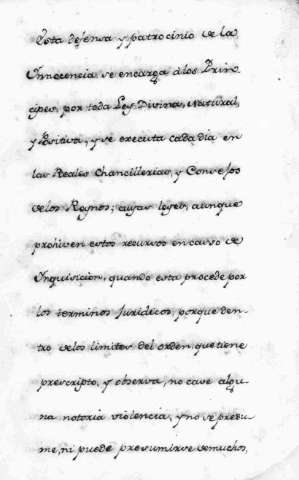 Esta defensa y patrocinio de la
Innocencia se encarga álos Prin-
cipes, por toda Ley Divina, Natural,
y Positiva, y se executa cada dia en
las Reales Chancillerias, y Consejos
de los Reynos; cuyas leyes, aunque
prohiven estos recursos en casso de
Inquisicion, quando esta procede por
los terminos Juridicos, porque den-
tro de los limites del orden, que tiene
prescripto, y observa, no cave algu-
na notoria violencia, y no se presu-
me, ni puede presumirse de muchos,